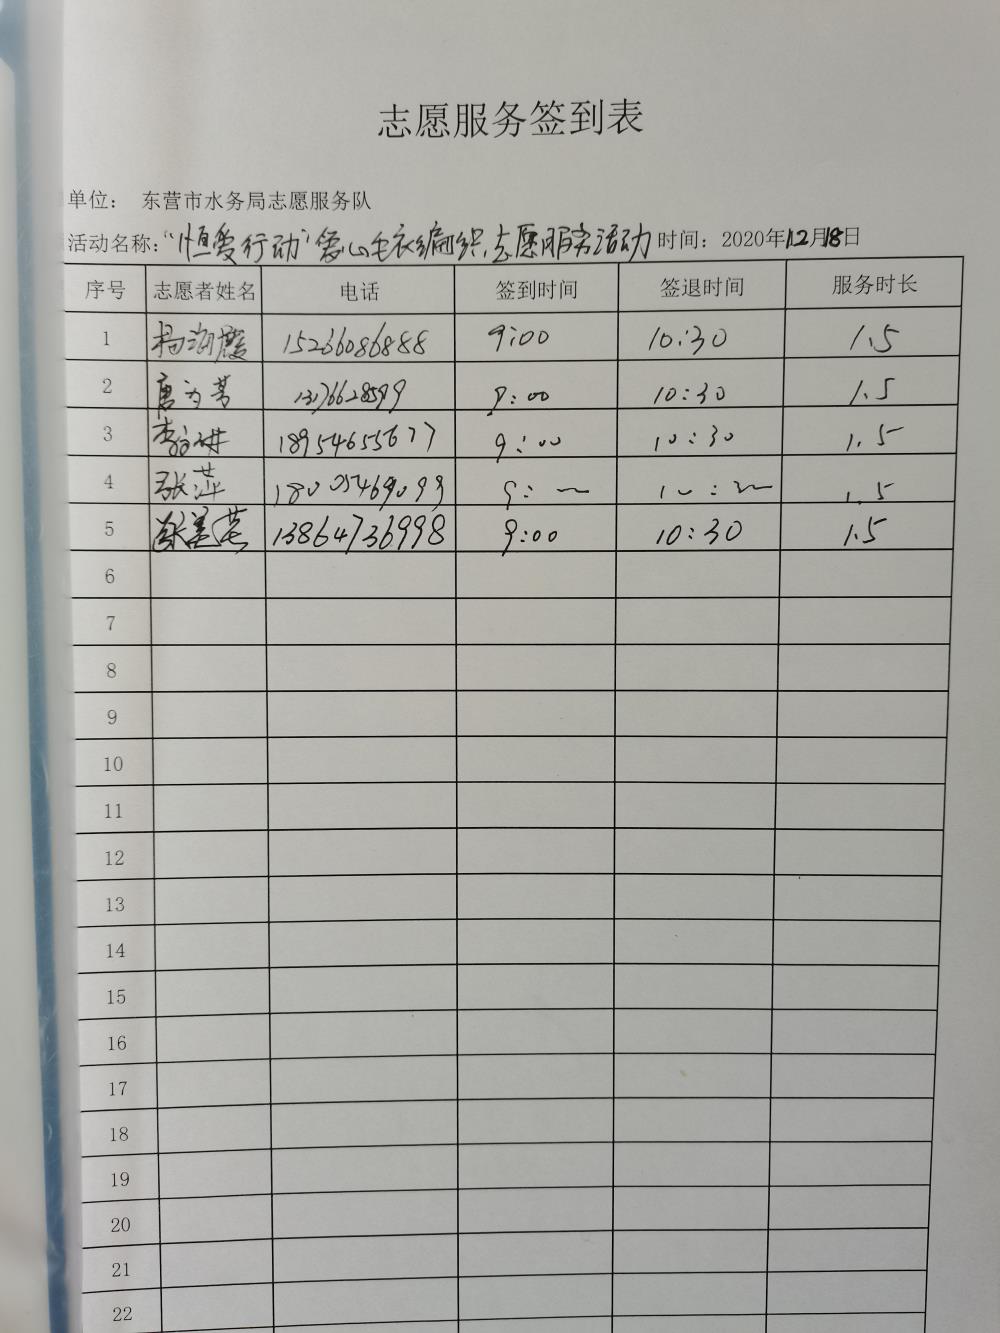 志愿服务签到表
单位： 东营市水务局志愿服务队
活动名称：“恒爱行动”爱心毛衣编织志愿服务活动 时间：2020年12月18日
序号 志愿者姓名 电话 签到时间 签退时间 服务时长
1 杨海霞 15266086888 9:00 10:30 1.5
2 9:00 10:30 1.5
3 18954655677 9:00 10:30 1.5
4 张萍 18005469099 9:00 10:30 1.5
5 13864736998 9:00 10:30 1.5
6
7
8
9
10
11
12
13
14
15
16
17
18
19
20
21
22